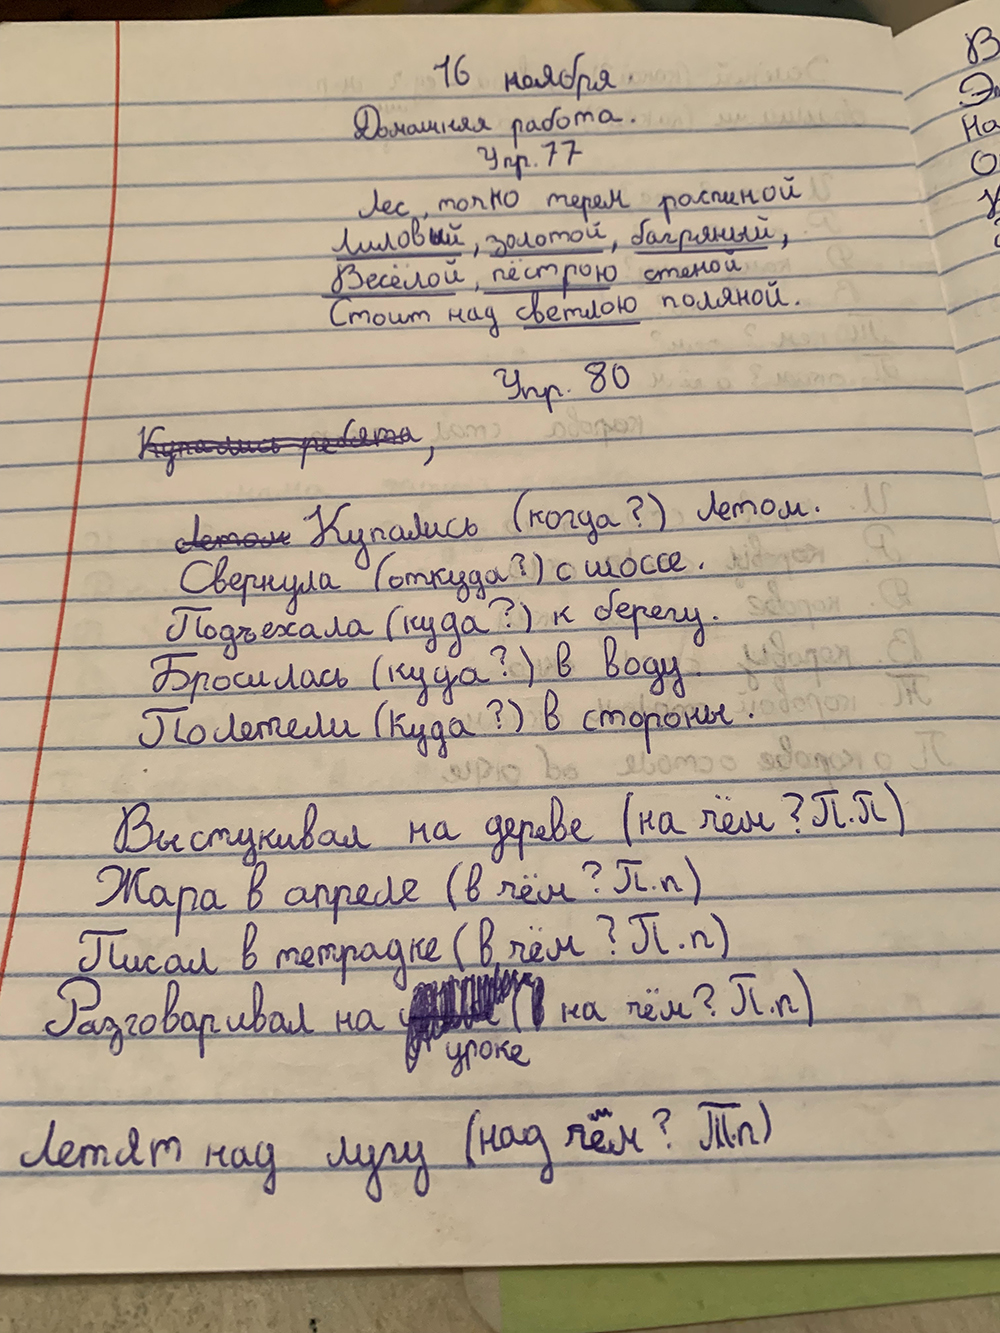 16 ноября
Домашняя работа.
Упр. 77
Лес, точно терем росписной
Лиловый, золотой, багряный,
Весёлой, пёстрою стеной
Стоит над светлою поляной.
Упр. 80
Купались ребята,
Летом Купались (когда?) летом.
Свернула (откуда?) с шоссе.
Подъехала (куда?) к берегу.
Бросилась (куда?) в воду.
Полетели (куда?) в стороны.
Выстукивал на дереве (на чём? П.П)
Жара в апреле (в чём? П.п)
Писал в тетрадке (в чём? П.п)
Разговаривал на (на чём? П.п)
уроке
Летят над лугу (над чем? Т.п)
В
На